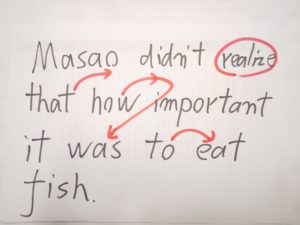 Masao didn't realize
that how important
it was to eat
fish.